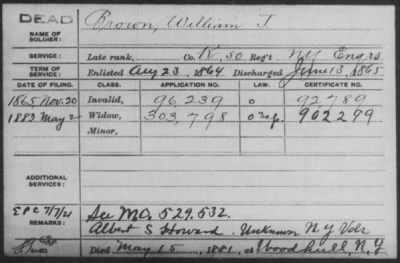 DEAD
NAME OF SOLDIER: Brown, William T.
SERVICE: Late rank, Co. K, 50 Reg't NY Engrs
TERM OF SERVICE: Enlisted Aug 23, 1864 Discharged June 13, 1865
DATE OF FILING. CLASS. APPLICATION NO. LAW. CERTIFICATE NO.
1865 Nov. 20 Invalid, 96,239 o 92789
1883 May 2 Widow, 303,798 902299
Minor,
ADDITIONAL SERVICES:
EPC 7/7/21 See Mo. 529.532.
REMARKS: Albert S Howard. Unknown N.Y Vols
Died May 15, 1881, at Woodhull, N, Y